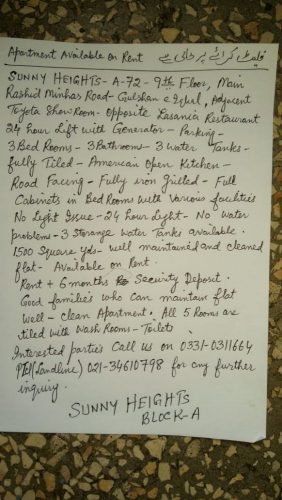 Apartment Available on Rent فلیٹ کرائے پر خالی ہے
SUNNY HEIGHTS - A-72 - 9th Floor, Main
Rashid Minhas Road - Gulshan e Iqbal, Adjacent
Toyota Show Room - Opposite Lasania Restaurant
24 hour Lift with Generator - Parking -
3 Bed Rooms - 3 Bathrooms - 3 water Tanks -
fully Tiled - American Open Kitchen -
Road Facing - Fully iron Grilled - Full
Cabinets in Bed Rooms with Various facilities
No Light Issue - 24 hour Light - No Water
problems - 3 Storange water Tanks available.
1500 Square yds - well maintained and cleaned
flat - Available on Rent.
Rent + 6 months Security Deposit.
Good families who can maintain flat
well - clean Apartment. All 5 Rooms are
tiled with Wash Rooms - Toilets
Interested parties Call us on 0331-0311664
PTCl (Landline) 021-34610798 for any further
inquiry.
SUNNY HEIGHTS
BLOCK-A